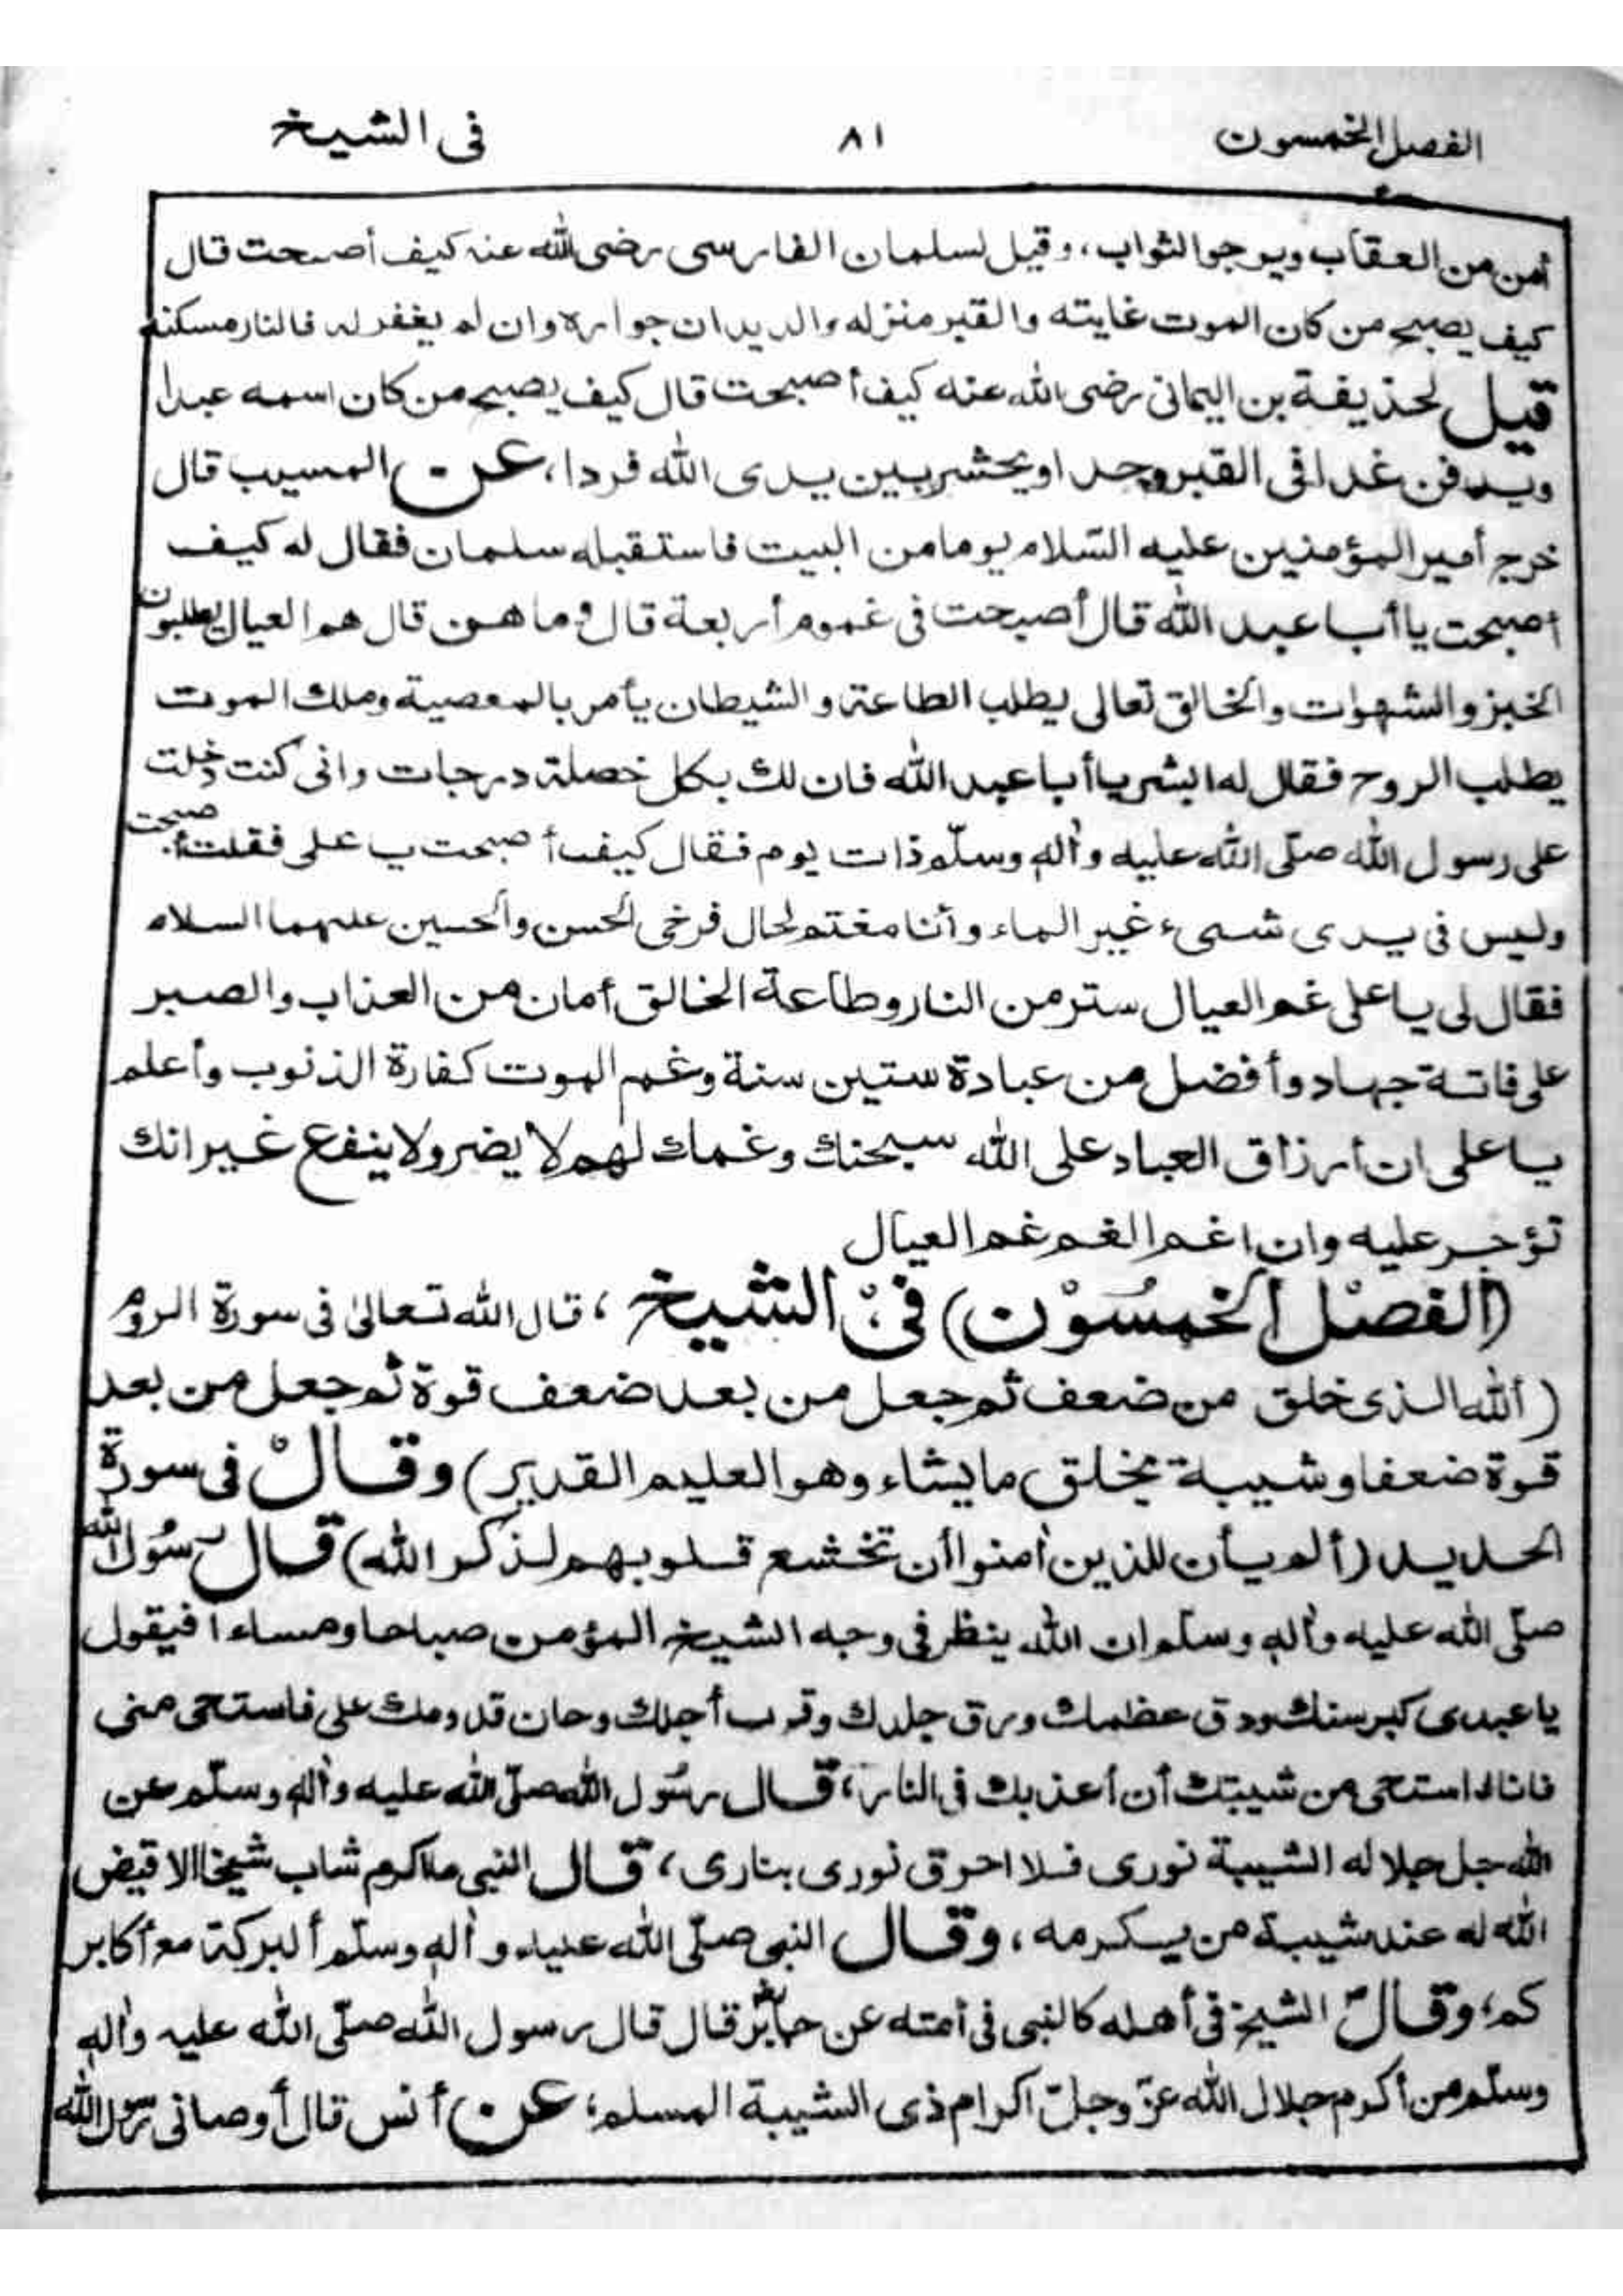 الفصل الخمسون ٨١ فى الشيخ
أمن من العقاب ويرجو الثواب، وقيل لسلمان الفارسى رضى الله عنه كيف أصبحت قال
كيف يصبح من كان الموت غايته والقبر منزله والديدان جواره وان لم يغفر له فالنار مسكنه
قيل لحذيفة بن اليمانى رضى الله عنه كيف أصبحت قال كيف يصبح من كان اسمه عبدا
ويدفن غدا فى القبر وحدا ويحشر بين يدى الله فردا، عن المسيب قال
خرج أمير المؤمنين عليه السّلام يوما من البيت فاستقبله سلمان فقال له كيف
أصبحت يا أبا عبد الله قال أصبحت فى غموم أربعة قال وما هن قال هم العيال يطلبون
الخبز والشهوات والخالق تعالى يطلب الطاعة والشيطان يأمر بالمعصية وملك الموت
يطلب الروح فقال له ابشر يا أبا عبد الله فان لك بكل خصلة درجات وانى كنت دخلت
على رسول الله صلّى الله عليه وآله وسلّم ذات يوم فقال كيف أصبحت يا على فقلت أصبحت
وليس فى يدى شىء غير الماء وأنا مغتم لحال فرخى الحسن والحسين عليهما السلام
فقال لى يا على غم العيال ستر من النار وطاعة الخالق أمان من العذاب والصبر
على فاتة جهاد وأفضل من عبادة ستين سنة وغم الموت كفارة الذنوب وأعلم
يا على ان أرزاق العباد على الله سبحنك وغمك لهم لا يضر ولا ينفع غير انك
تؤجر عليه وان اغم الغم غم العيال
(الفصل الخمسون) فى الشيخ، قال الله تعالى فى سورة الروم
(ألله الذى خلق من ضعف ثم جعل من بعد ضعف قوة ثم جعل من بعد
قوة ضعفا وشيبة يخلق ما يشاء وهو العليم القدير) وقال فى سورة
الحديد (ألم يأن للذين أمنوا أن تخشع قلوبهم لذكر الله) قال رسول الله
صلّى الله عليه وآله وسلّم ان الله ينظر فى وجه الشيخ المؤمن صباحا ومساءا فيقول
يا عبدى كبر سنك ودق عظمك ورق جلدك وقرب أجلك وحان قدومك على فاستحى منى
فانا استحى من شيبتك أن أعذبك فى النار، قال رسول الله صلّى الله عليه وآله وسلّم عن
الله جل جلاله الشيبة نورى فلا احرق نورى بنارى، قال النبى ما اكرم شاب شيخا الا قيض
الله له عند شيبة من يكرمه، وقال النبى صلّى الله عليه وآله وسلّم ألبركة مع أكابر
كم، وقال الشيخ فى أهله كالنبى فى أمته عن جابر قال قال رسول الله صلّى الله عليه وآله
وسلّم من أكرم جلال الله عزّ وجلّ اكرام ذى الشيبة المسلم، عن أنس قال أوصانى رسول الله